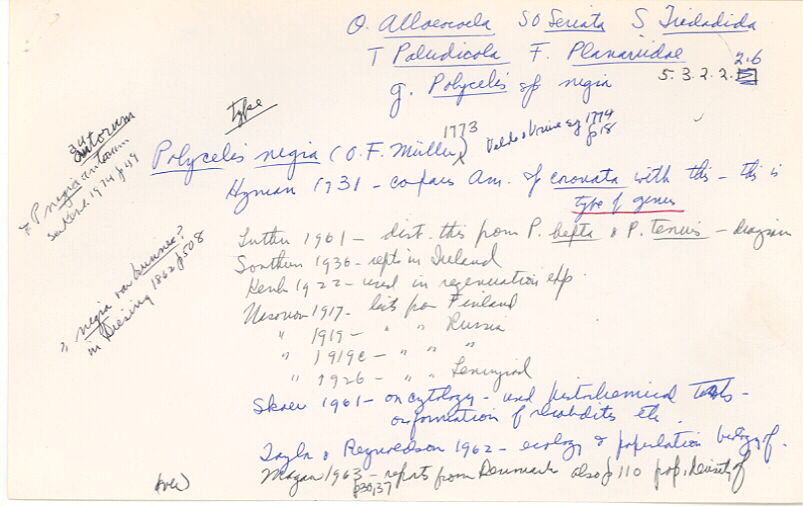 O. Alloeocoela SO Seriata S Tricladida
T Paludicola F. Planariidae
g. Polycelis sp nigra
2.6
5.3.2.2.
type
Polycelis nigra (O.F. Müller) 1773
1774 p18
Hyman 1931 – compares Am. sp coronata with this – this is
type of genus
Luther 1961 – dist. this from P. hepta & P. tenuis – diagram
Southern 1936 – repts in Ireland
1922 – used in regeneration exp.
Nasonov 1917 – lists from Finland
" 1919 – " " Russia
" 1919c – " " "
" 1926 – " " Leningrad
Skaer 1961 – on cytology – used histochemical tests –
on formation of rhabdites etc.
Taylor & Reynoldson 1962 – ecology & population biology of.
1963 – reports from Denmark also p 110 pop. density of
p30,37
over
autorum
≠ P nigra autorum
see Kenk 1974 p49
" nigra var brunnea?
in Diesing 1862 p508